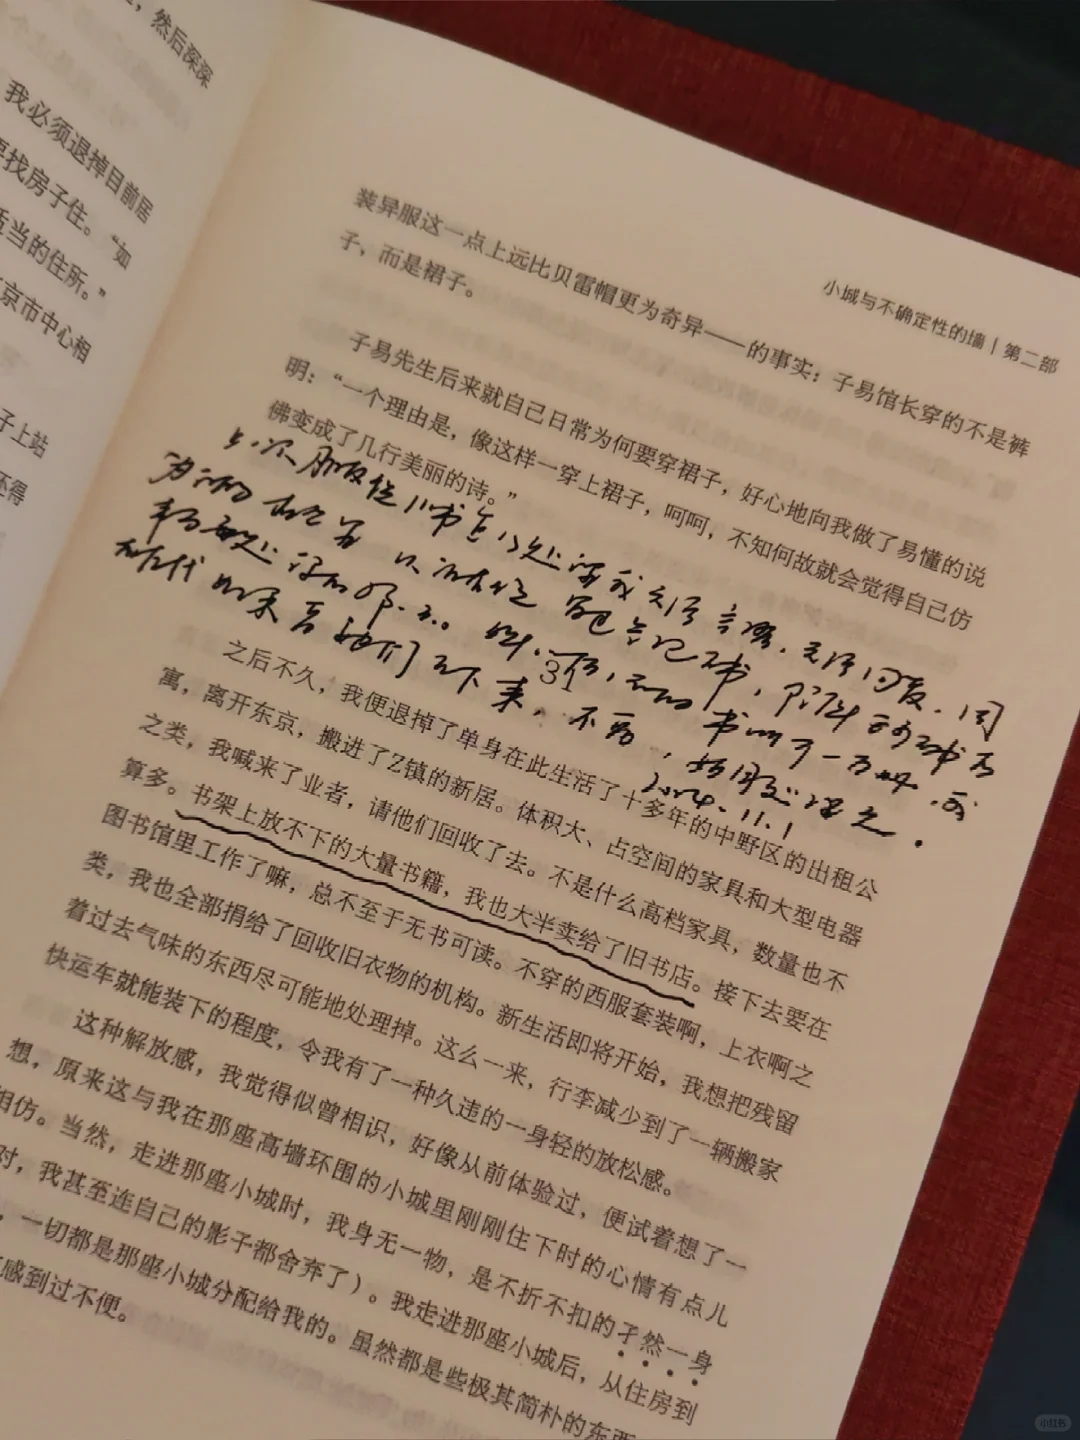 ，然后深深
我必须退掉目前居
要找房子住。“如
适当的住所。”
京市中心相
子上站
还得
小城与不确定性的墙｜第二部
装异服这一点上远比贝雷帽更为奇异——的事实：子易馆长穿的不是裤
子，而是裙子。
子易先生后来就自己日常为何要穿裙子，好心地向我做了易懂的说
明：“一个理由是，像这样一穿上裙子，呵呵，不知何故就会觉得自己仿
佛变成了几行美丽的诗。”
31
2024.11.1
之后不久，我便退掉了单身在此生活了十多年的中野区的出租公
寓，离开东京，搬进了Z镇的新居。体积大、占空间的家具和大型电器
之类，我喊来了业者，请他们回收了去。不是什么高档家具，数量也不
算多。书架上放不下的大量书籍，我也大半卖给了旧书店。接下去要在
图书馆里工作了嘛，总不至于无书可读。不穿的西服套装啊，上衣啊之
类，我也全部捐给了回收旧衣物的机构。新生活即将开始，我想把残留
着过去气味的东西尽可能地处理掉。这么一来，行李减少到了一辆搬家
快运车就能装下的程度，令我有了一种久违的一身轻的放松感。
这种解放感，我觉得似曾相识，好像从前体验过，便试着想了一
想，原来这与我在那座高墙环围的小城里刚刚住下时的心情有点儿
相仿。当然，走进那座小城时，我身无一物，是不折不扣的孑然一身
对，我甚至连自己的影子都舍弃了）。我走进那座小城后，从住房到
，一切都是那座小城分配给我的。虽然都是些极其简朴的东西
感到过不便。
小红书